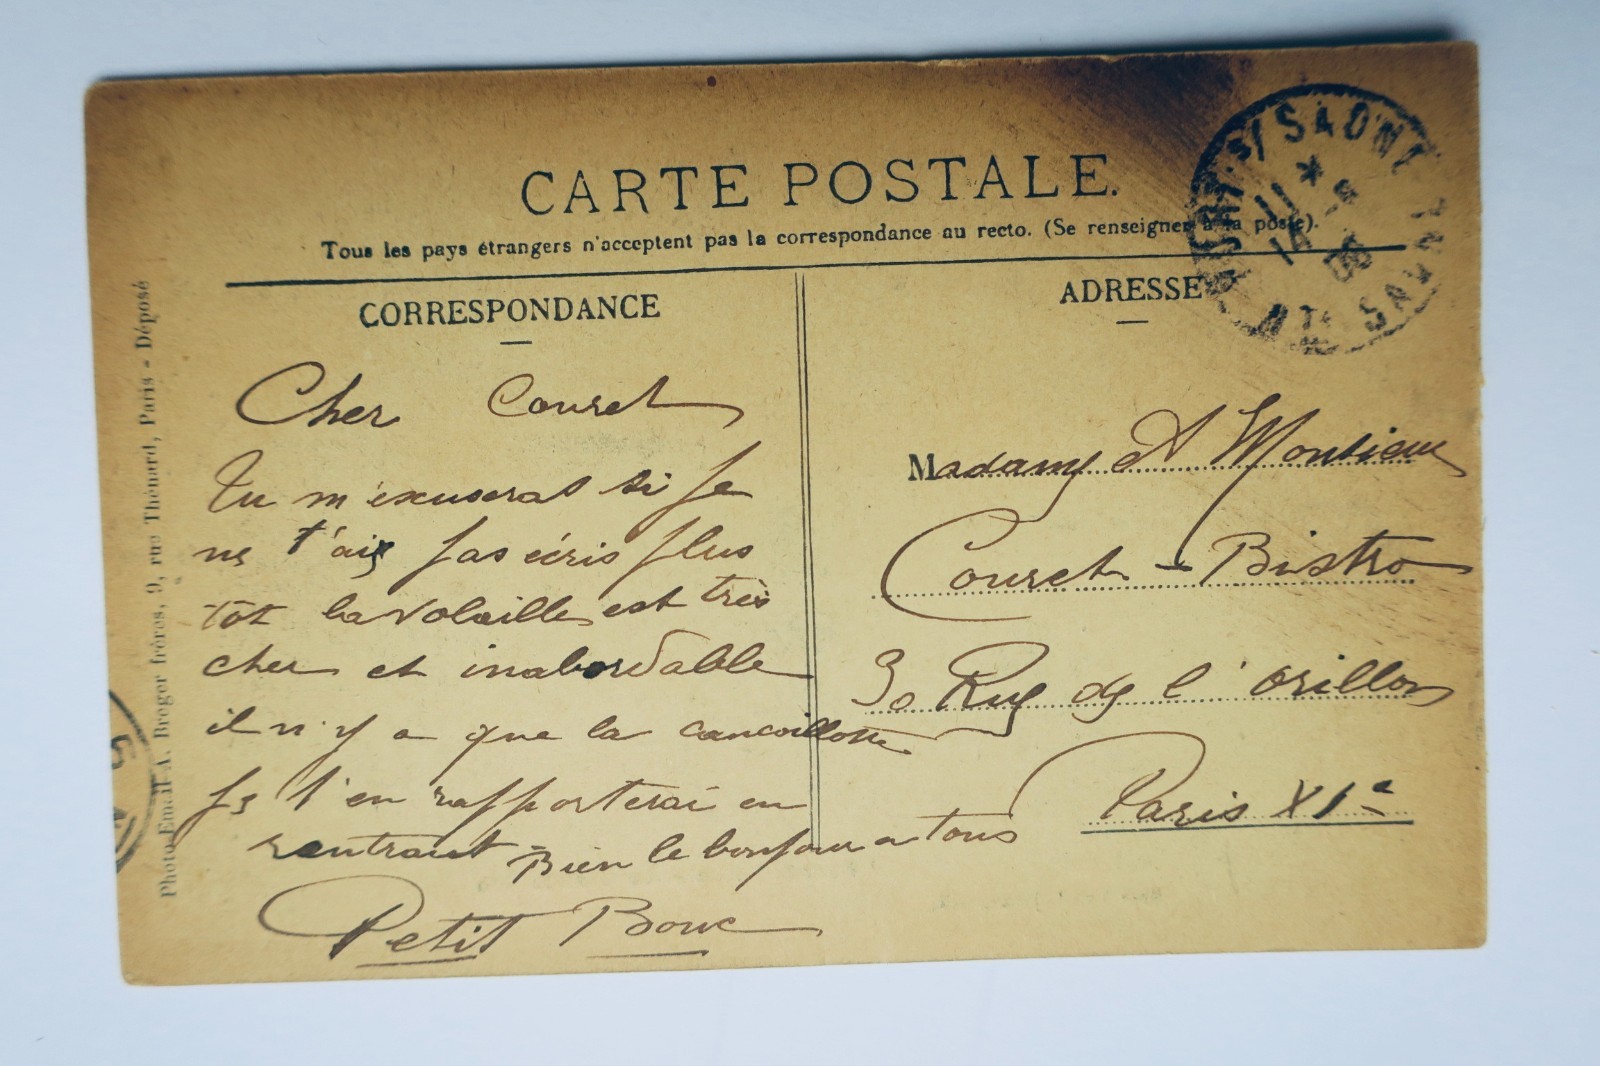 CARTE POSTALE.
Tous les pays étrangers n'acceptent pas la correspondance au recto. (Se renseigner à la poste).
CORRESPONDANCE
Cher Couret
Tu m'excuseras si je
ne t'ais pas écris plus
tôt la volaille est très
cher et inabordable
il n'y a que la cancoillotte
je t'en rapporterai en
rentrant - Bien le bonjour a tous
Petit Bouc
ADRESSE
Madame et Monsieur
Couret - Bistro
30 Rue de l'orillon
Paris XIe
Photo Email A. Breger frères, 9, rue Thénard, Paris - Déposé
S/SAONE
11
06
HTE SAONE